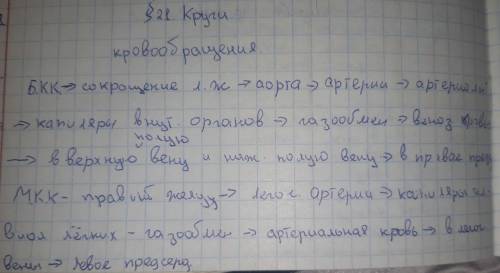 §21. Круги
кровообращения.
БКК → сокращение л.ж → аорта → артерии →
→ капиляры внут. органов → газообмен → веноз
→ в верхную полую вену и ниж. полую вену → в правое
МКК - правый желуд → легоч. артерии → капиляры
лёгких - газообмен → артериальная кровь → в
вены → левое предсерд